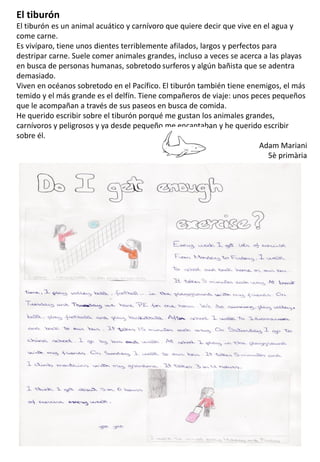 El tiburón
El tiburón es un animal acuático y carnívoro que quiere decir que vive en el agua y
come carne.
Es vivíparo, tiene unos dientes terriblemente afilados, largos y perfectos para
destripar carne. Suele comer animales grandes, incluso a veces se acerca a las playas
en busca de personas humanas, sobretodo surferos y algún bañista que se adentra
demasiado.
Viven en océanos sobretodo en el Pacífico. El tiburón también tiene enemigos, el más
temido y el más grande es el delfín. Tiene compañeros de viaje: unos peces pequeños
que le acompañan a través de sus paseos en busca de comida.
He querido escribir sobre el tiburón porqué me gustan los animales grandes,
carnívoros y peligrosos y ya desde pequeño me encantaban y he querido escribir
sobre él.
Adam Mariani
5è primària
Do I get enough
exercise?
Every week I get lots of exercise
From Monday to Friday, I walk
to school and back home
It takes 5 minutes each way. At
time, I play volley ball, football in the playground with my friends. On
Tuesday and Thursday we have PE for one hour.
ball, play football and play basketball. After school I walk to
and back to It takes 15 minutes each way. On Saturday I go to
school. I go by and walk. At I play in the playground
with my friends. On Sunday I walk to It takes 5 minutes and
I climb mountains with my grandma. It takes 3
I think I get about 5 or 6 hours
of exercise every week.
I walk to